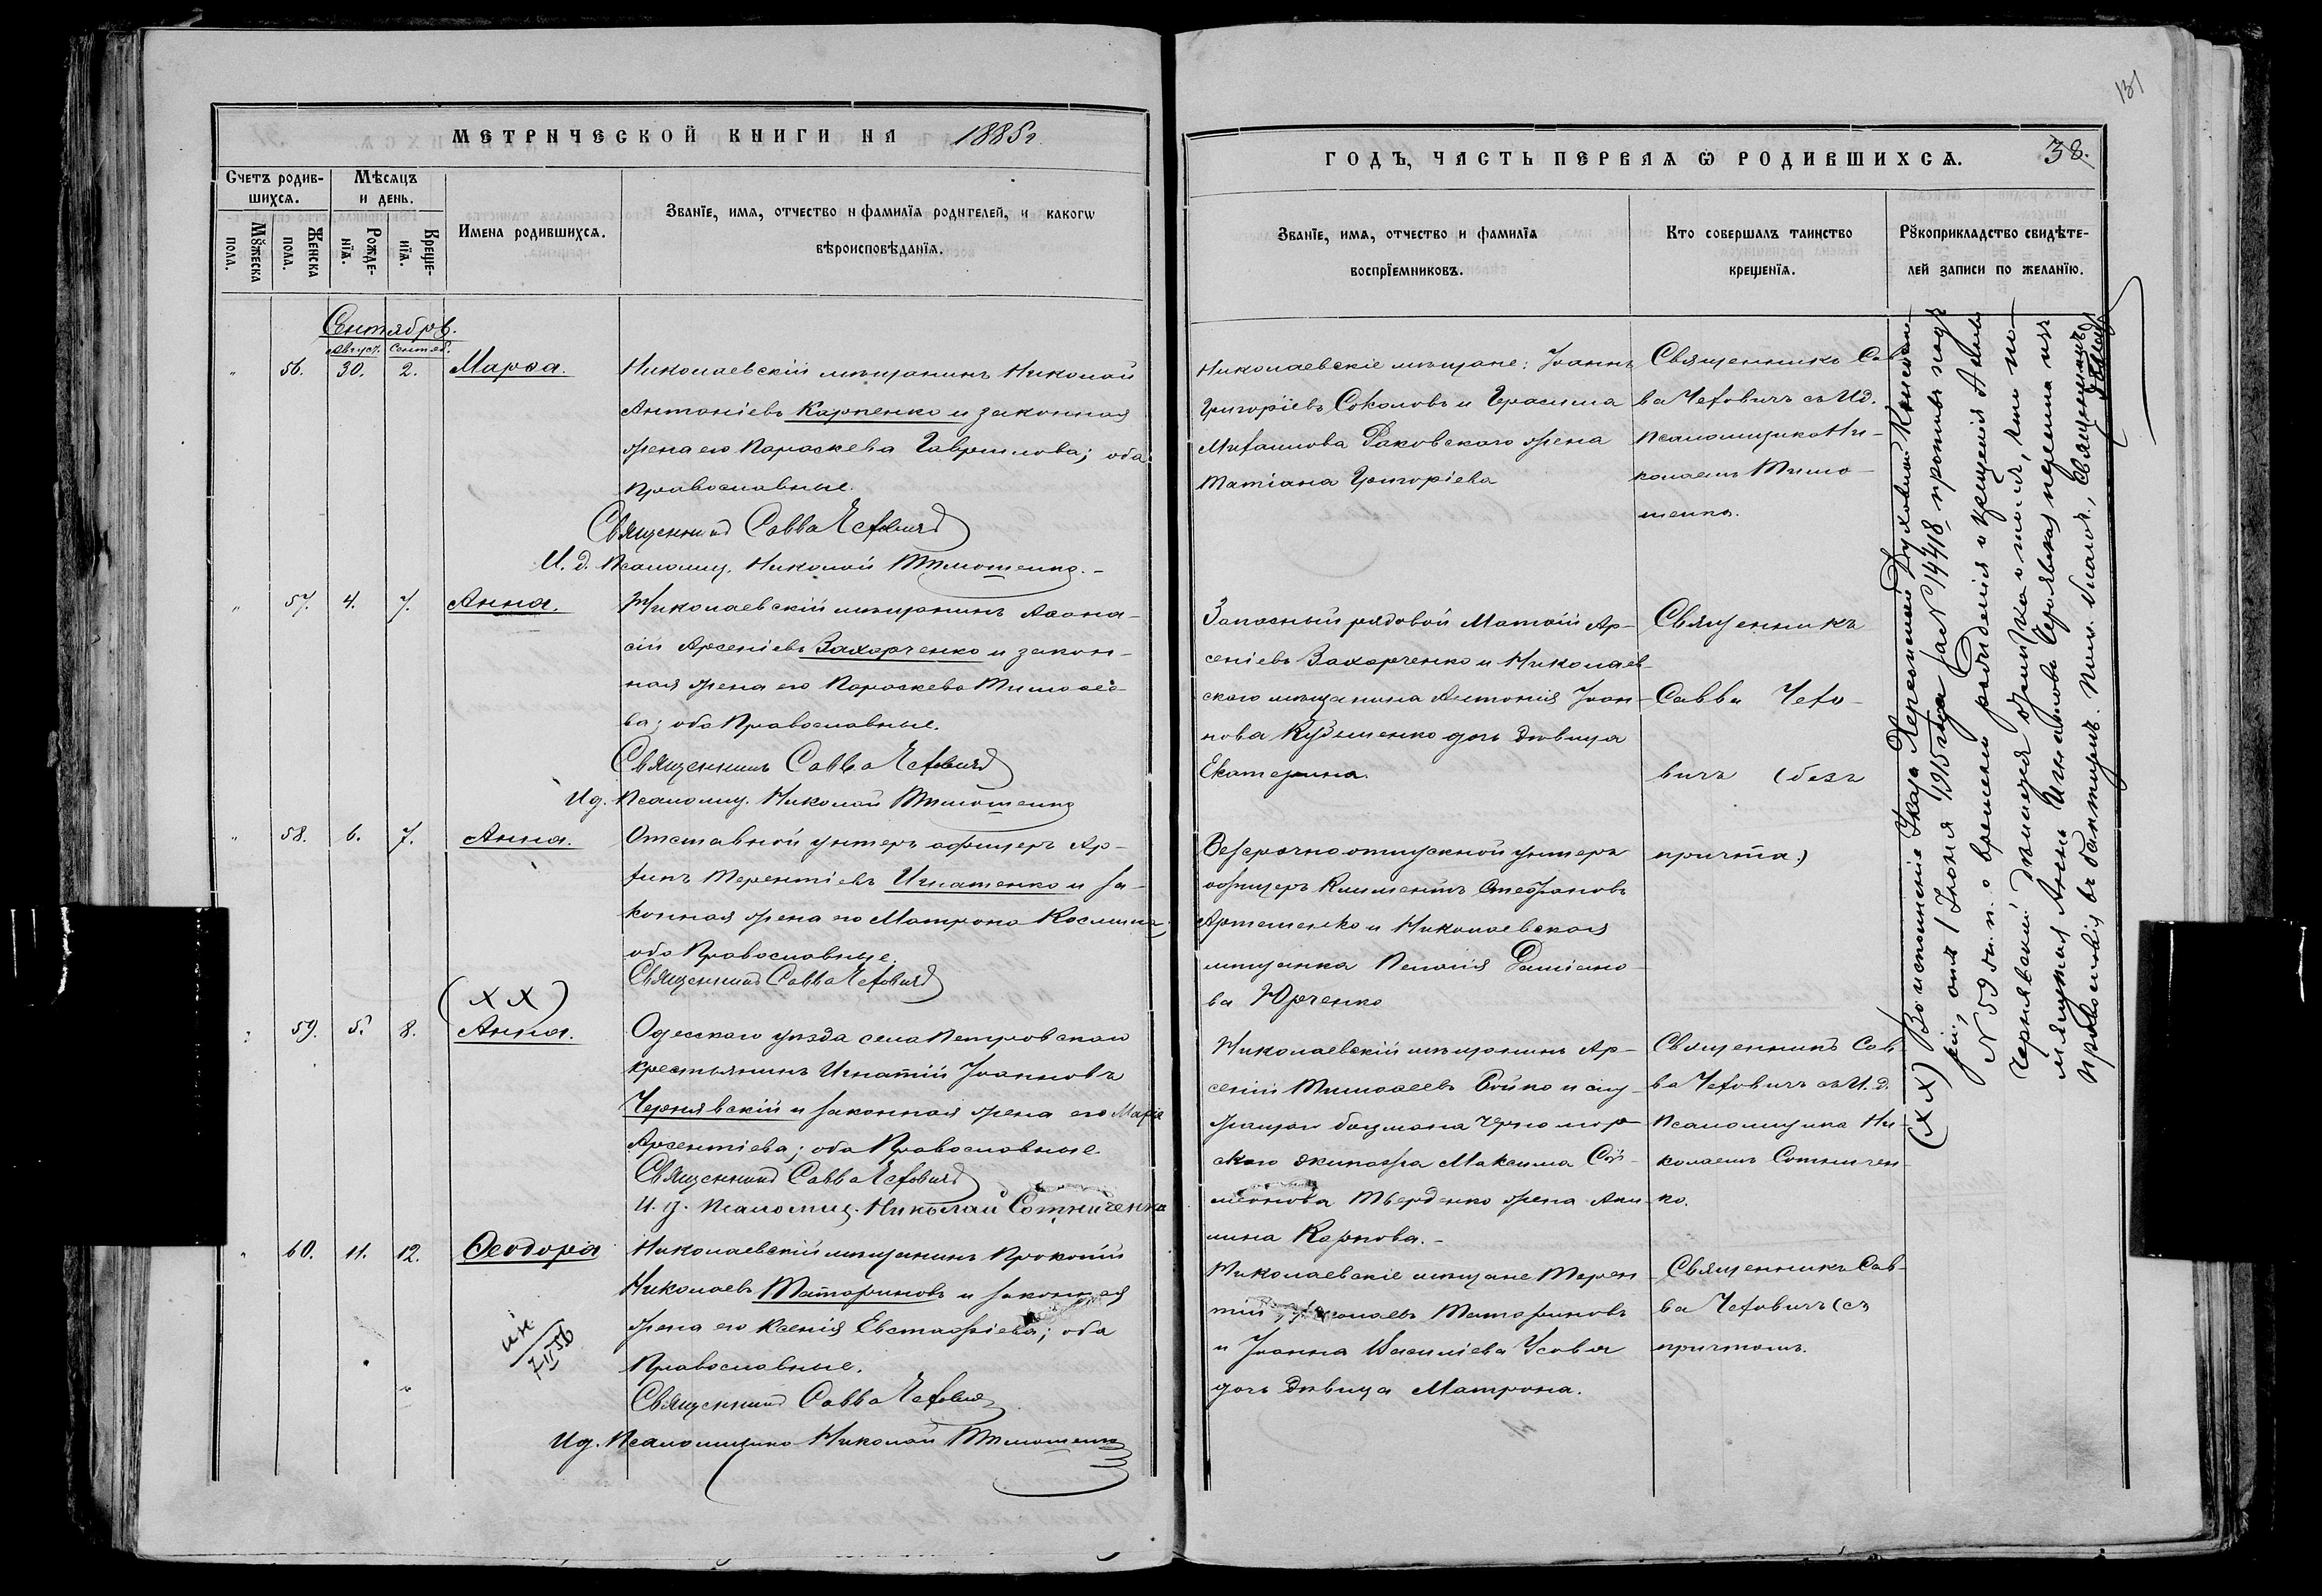 МЕТРИЧЕСКОЙ КНИГИ НА 1885г.
Счетъ родив-
шихсѧ.
Мѣсѧцъ
и день.
Мꙋжеска
пола.
Женска
пола.
Рожде-
нїѧ.
Креще-
нїѧ.
Имена родившихсѧ.
Званїе, имѧ, отчество и фамилїѧ родителей, и какогѡ
вѣроисповѣданїѧ.
Сентябрь.
Август. Сентяб.
56. 30. 2. Марѳа.
Николаевскій мѣщанинъ Николай
Антоніевъ Карпенко и законная
жена его Параскева Гаврилова; оба
Православные.
Священникъ Савва Чехович
И. д. Псаломщ. Николай Тимошенко. –
57. 4. 7. Анна.
Николаевскій мѣщанинъ Аѳана-
сій Арсеніевъ Захарченко и закон-
ная жена его Параскева Тимоѳее-
ва; оба Православные.
Священникъ Савва Чехович
Ид. Псаломщ. Николай Тимошенко
58. 6. 7. Анна.
Отставной унтеръ офицеръ Ар-
хипъ Терентіевъ Игнатенко и за-
конная жена его Матрона Космина,
оба Православные.
Священникъ Савва Чехович
(ХХ)
59. 5. 8. Анна.
Одесскаго уѣзда села Петровскаго
крестьянинъ Игнатій Іоанновъ
Чернявскій и законная жена его Марія
Арсентіева; оба Православные.
Священникъ Савва Чехович
И. д. Псаломщ. Николай Сотниченко
60. 11. 12. Ѳеодора
Николаевскій мѣщанинъ Прокопій
Николаевъ Татариновъ и законная
жена его Ксенія Евстафіева; оба
Православные.
Священникъ Савва Чехович
Ид. Псаломщика Николай Тимошенко
7 II 56
131
ГОДЪ, ЧАСТЬ ПЕРВАѦ Ѡ РОДИВШИХСѦ. 38.
Званїе, имѧ, отчество и фамилїѧ
воспрїемниковъ.
Кто совершалъ таинство
крещенїѧ.
Рꙋкоприкладство свидѣте-
лей записи по желанїю.
Николаевскіе мѣщане: Іоаннъ
Григоріевъ Соколовъ и Герасима
Михаилова Раковскаго жена
Татіана Григоріева
Священникъ Сав-
ва Чеховичъ съ Ид.
Псаломщика Ни-
колаемъ Тимо-
шенко.
Запасный рядовой Матѳій Ар-
сеніевъ Захарченко и Николаев-
скаго мѣщанина Антонія Іоан-
нова Кузьменко дочь дѣвица
Екатерина.
Священникъ
Савва Чехо-
вичъ (безъ
Безсрочно отпускной унтеръ
офицеръ Климентъ Стефановъ
Артеменко и Николаевская
мѣщанка Пелагія Даміано-
ва Юрченко
причта.)
Николаевскій мѣщанинъ Ар-
сеній Тимоѳеевъ Бойко и слу-
жащаго боцмана Черномор-
скаго экипажа Максима Си-
меонова Тверденко жена Аки-
лина Карпова. –
Священникъ Сав-
ва Чеховичъ съ И. д.
Псаломщика Ни-
колаемъ Сотничен-
ко.
Николаевскіе мѣщане Терен-
тій Николаевъ Татариновъ
и Іоанна Василіева Усова
дочь дѣвица Матрона.
Священникъ Сав-
ва Чеховичъ (съ
причтомъ.
(ХХ) Во исполненіе Указа Херсонской Духовной Консисто-
ріи, отъ 1 Іюня 1915 года за № 14418, противъ подъ
№ 59 ж. п. о времени рожденія и крещенія Анны
Чернявской
Анны Игнатовой Чернявская перешла изъ
православія въ баптизмъ. Священникъ